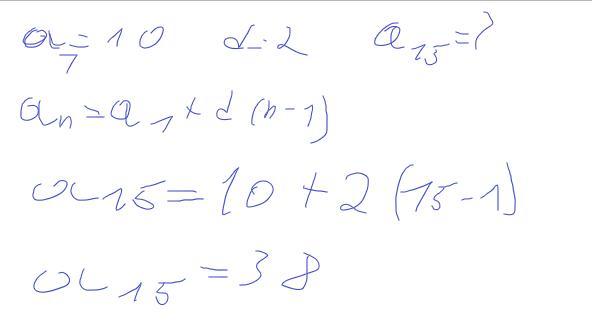 a₁=10 d=2 a₁₅=?
aₙ=a₁+d(n-1)
a₁₅=10+2(15-1)
a₁₅=38